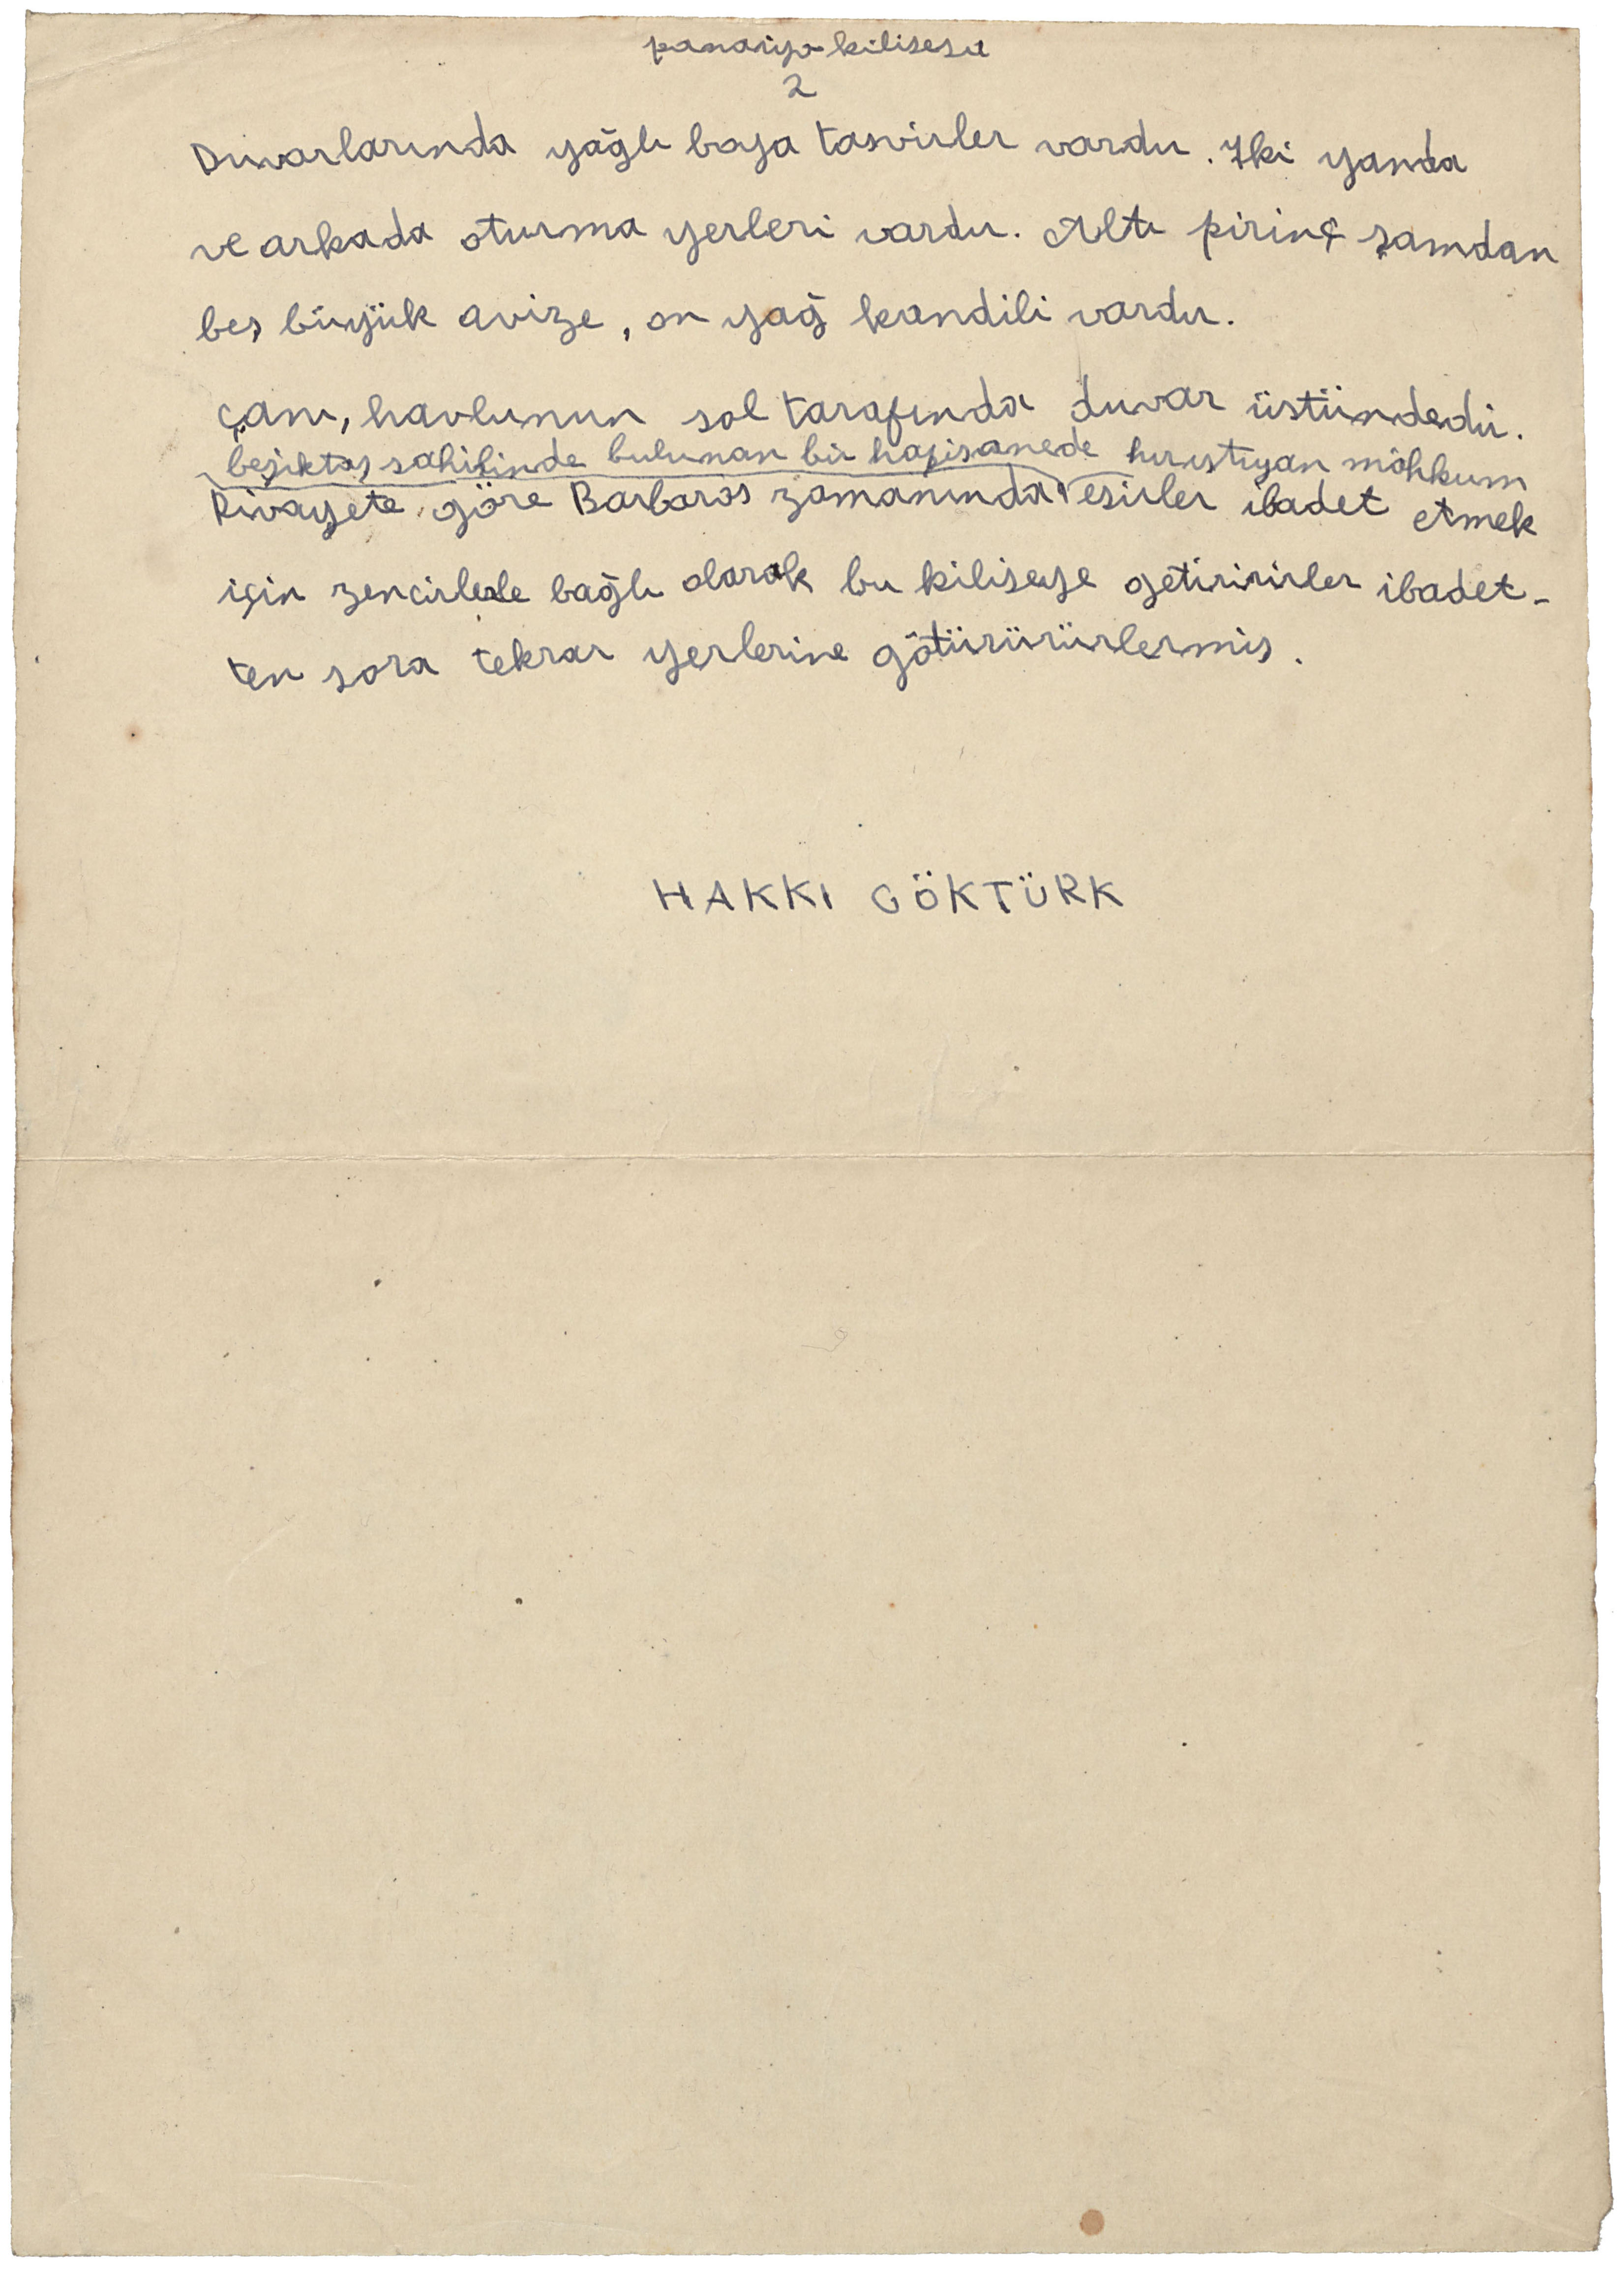 panaiya kilisesi
2
Duvarlarında yağlı boya tasvirler vardır. Iki yanda
ve arkada oturma yerleri vardır. Altı pirinç şamdan
beş büyük avize, on yağ kandili vardır.
çanı, havlunun sol tarafında duvar üstündedir.
beşiktaş sahilinde bulunan bir hapisanede hırıstıyan mahkum
Rivayete göre Barbaros zamanında esirler ibadet etmek
için zencirlerle bağlı olarak bu kiliseye getiririrler ibadet-
ten sora tekrar yerlerine götürürürlermiş.
HAKKI GÖKTÜRK